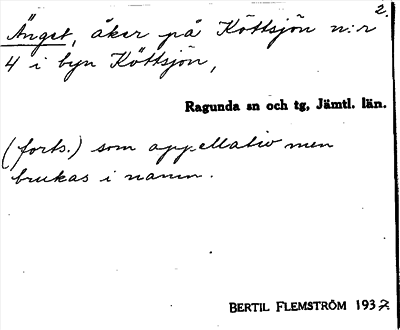 2.
Änget, åker på Köttsjön n:r
4 i byn Köttsjön,
Ragunda sn och tg, Jämtl. län.
(forts.) som appellativ men
brukas i namn.
BERTIL FLEMSTRÖM 1937.